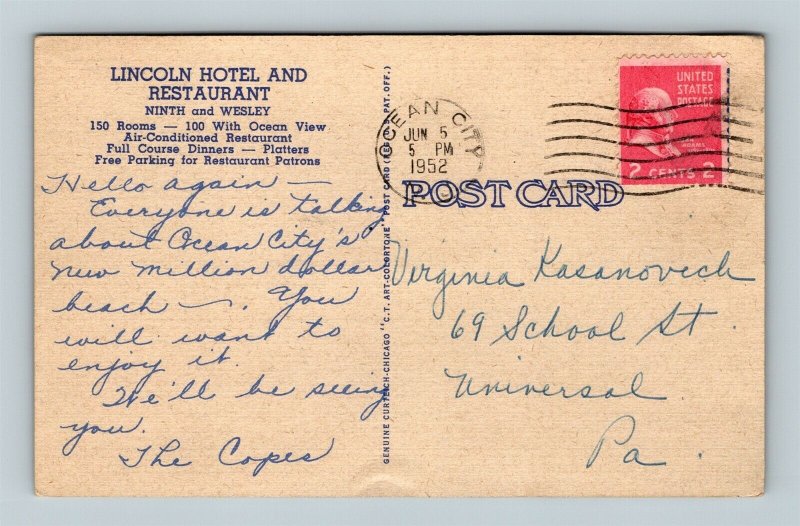 LINCOLN HOTEL AND
RESTAURANT
NINTH and WESLEY
150 Rooms — 100 With Ocean View
Air-Conditioned Restaurant
Full Course Dinners — Platters
Free Parking for Restaurant Patrons
Hello again —
Everyone is talking
about Ocean City's
new million dollar
beach —. You
will want to
enjoy it.
We'll be seeing
you.
The Copes
GENUINE CURTEICH-CHICAGO "C.T. ART-COLORTONE" POST CARD (REG. U.S. PAT. OFF.)
OCEAN CITY
JUN 5
5 PM
1952
UNITED
STATES
POSTAGE
ADAMS
2 CENTS 2
POST CARD
Virginia Kasanovech
69 School St.
Universal
Pa.